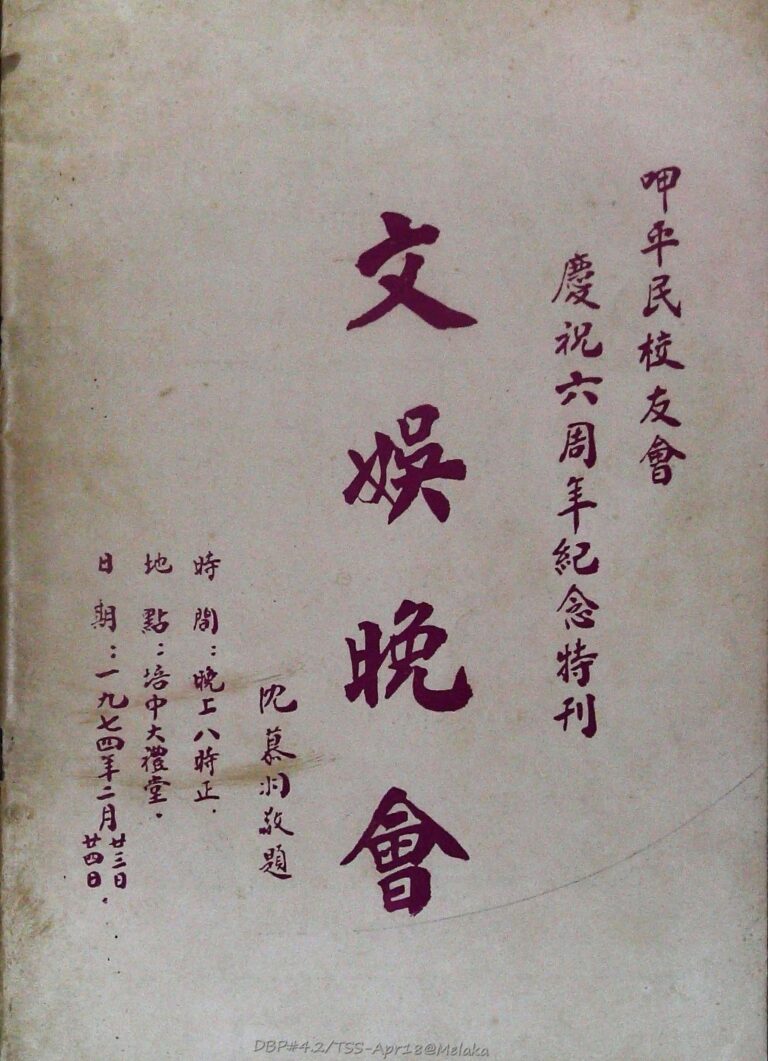 呷平民校友會
慶祝六周年紀念特刊
文娛晚會
沈慕羽敬題
時間：晚上八時正．
地點：培中大禮堂．
日期：一九七四年二月廿三日廿四日．
DBP#4.2/TSS-Apr18@Melaka